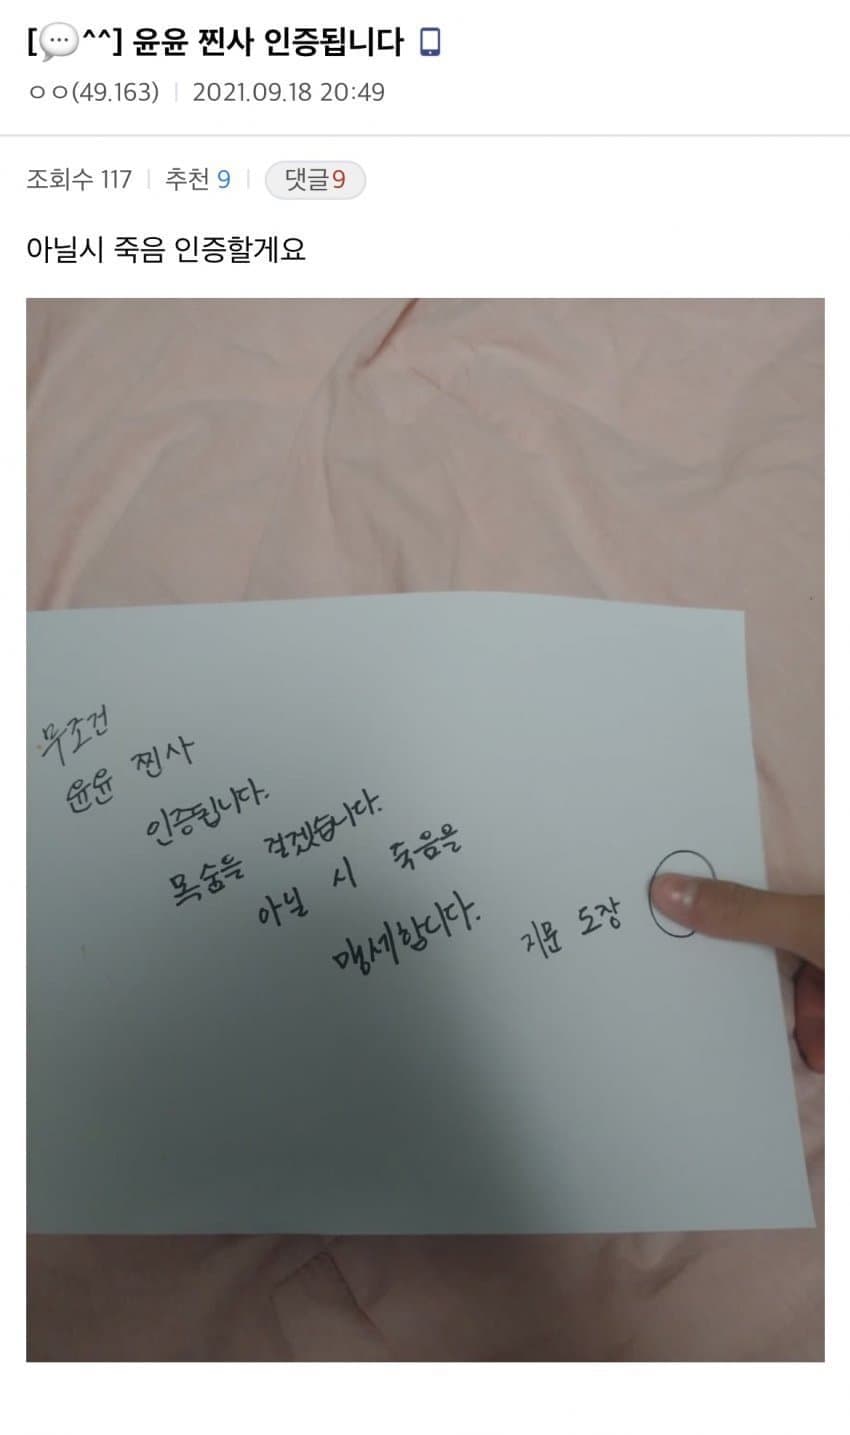 [💬^^] 윤윤 찐사 인증됩니다
ㅇㅇ(49.163) | 2021.09.18 20:49
조회수 117 | 추천 9 | 댓글9
아닐시 죽음 인증할게요
무조건
윤윤 찐사
인증됩니다.
목숨을 걸겠습니다.
아닐 시 죽음을
맹세합니다.
지문 도장